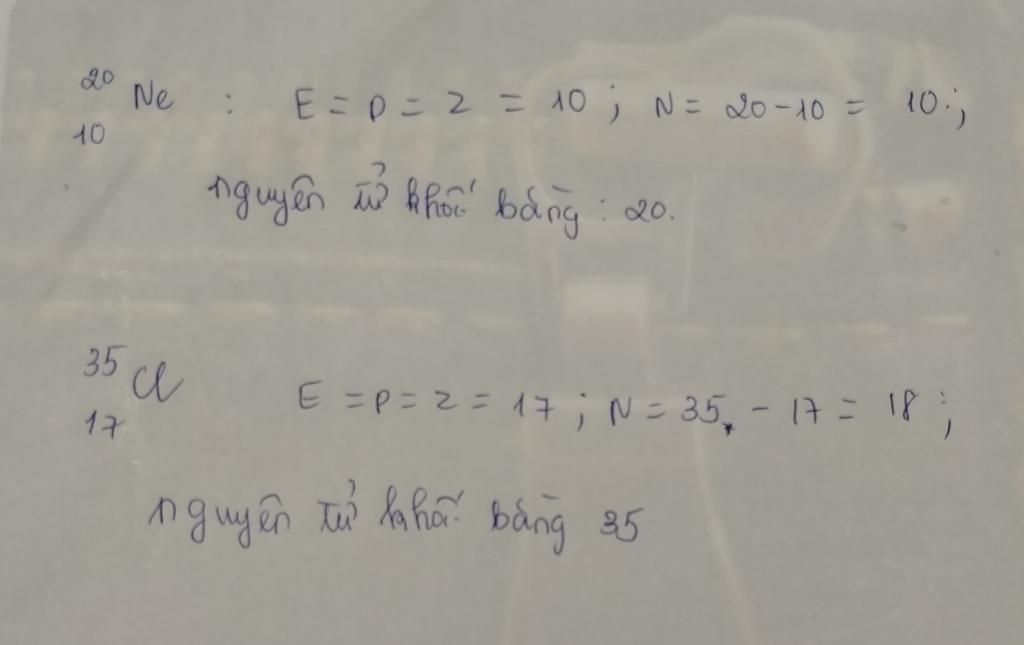 ²⁰₁₀Ne : E = P = Z = 10 ; N = 20 - 10 = 10 ;
nguyên tử khối bằng : 20.
³⁵₁₇Cl E = P = Z = 17 ; N = 35 - 17 = 18 ;
nguyên tử khối bằng 35